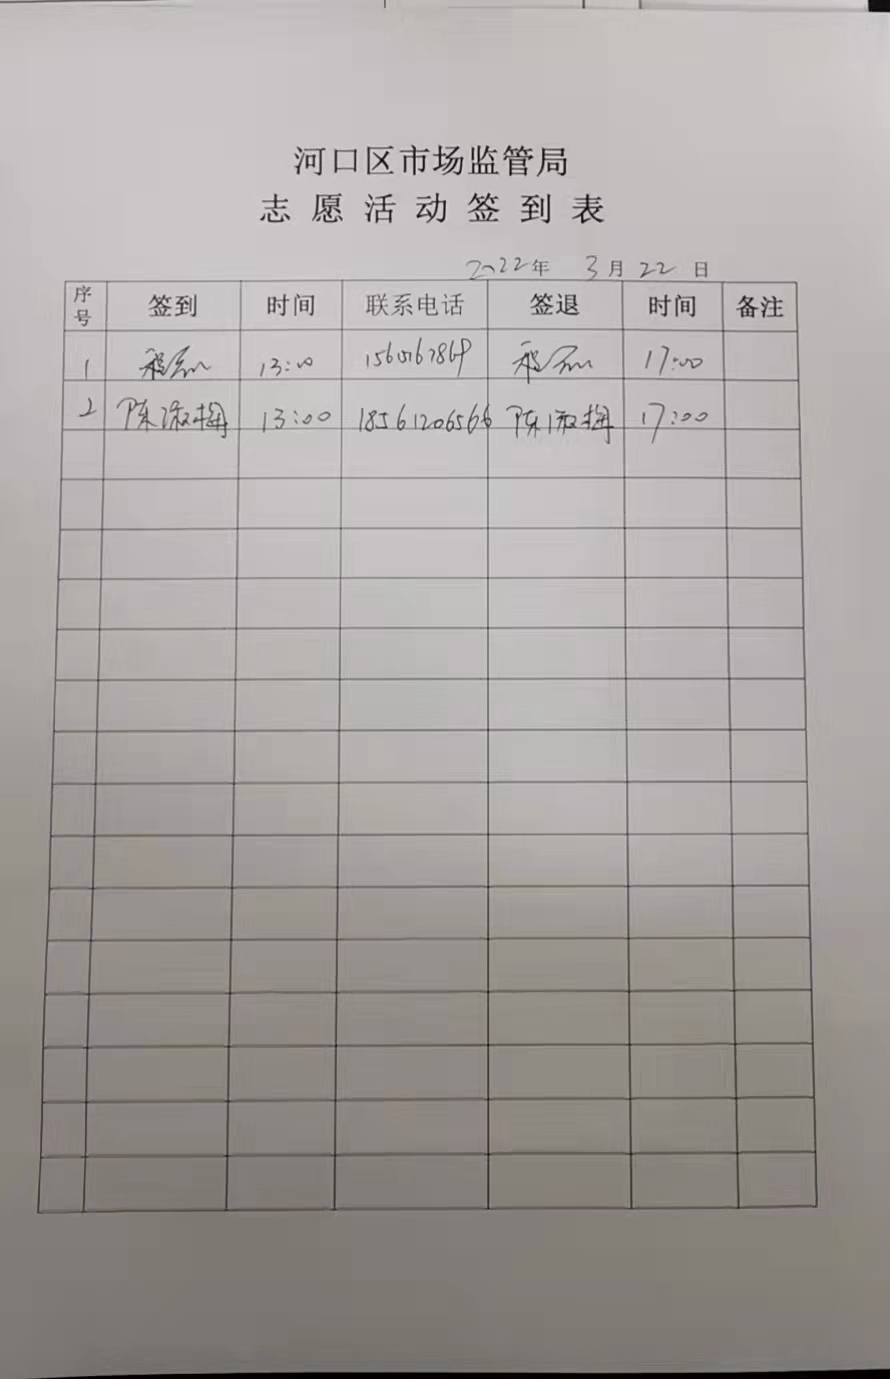 河口区市场监管局
志愿活动签到表
2022年 3月22日
序号 签到 时间 联系电话 签退 时间 备注
1 13:00 17:00
2 陈淑梅 13:00 18561206566 陈淑梅 17:00